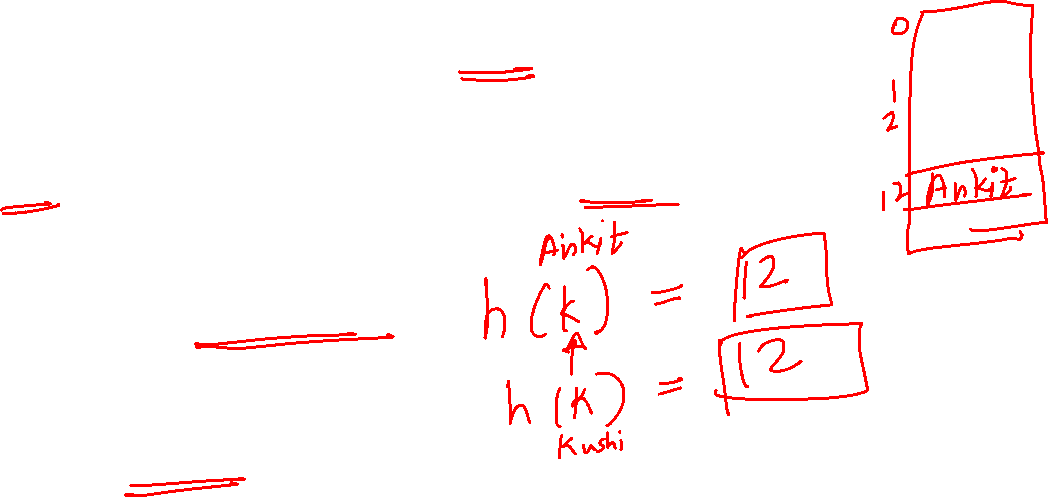 0
1
2
12 Ankit
Ankit
h (k) = 12
h (k) = 12
Kushi